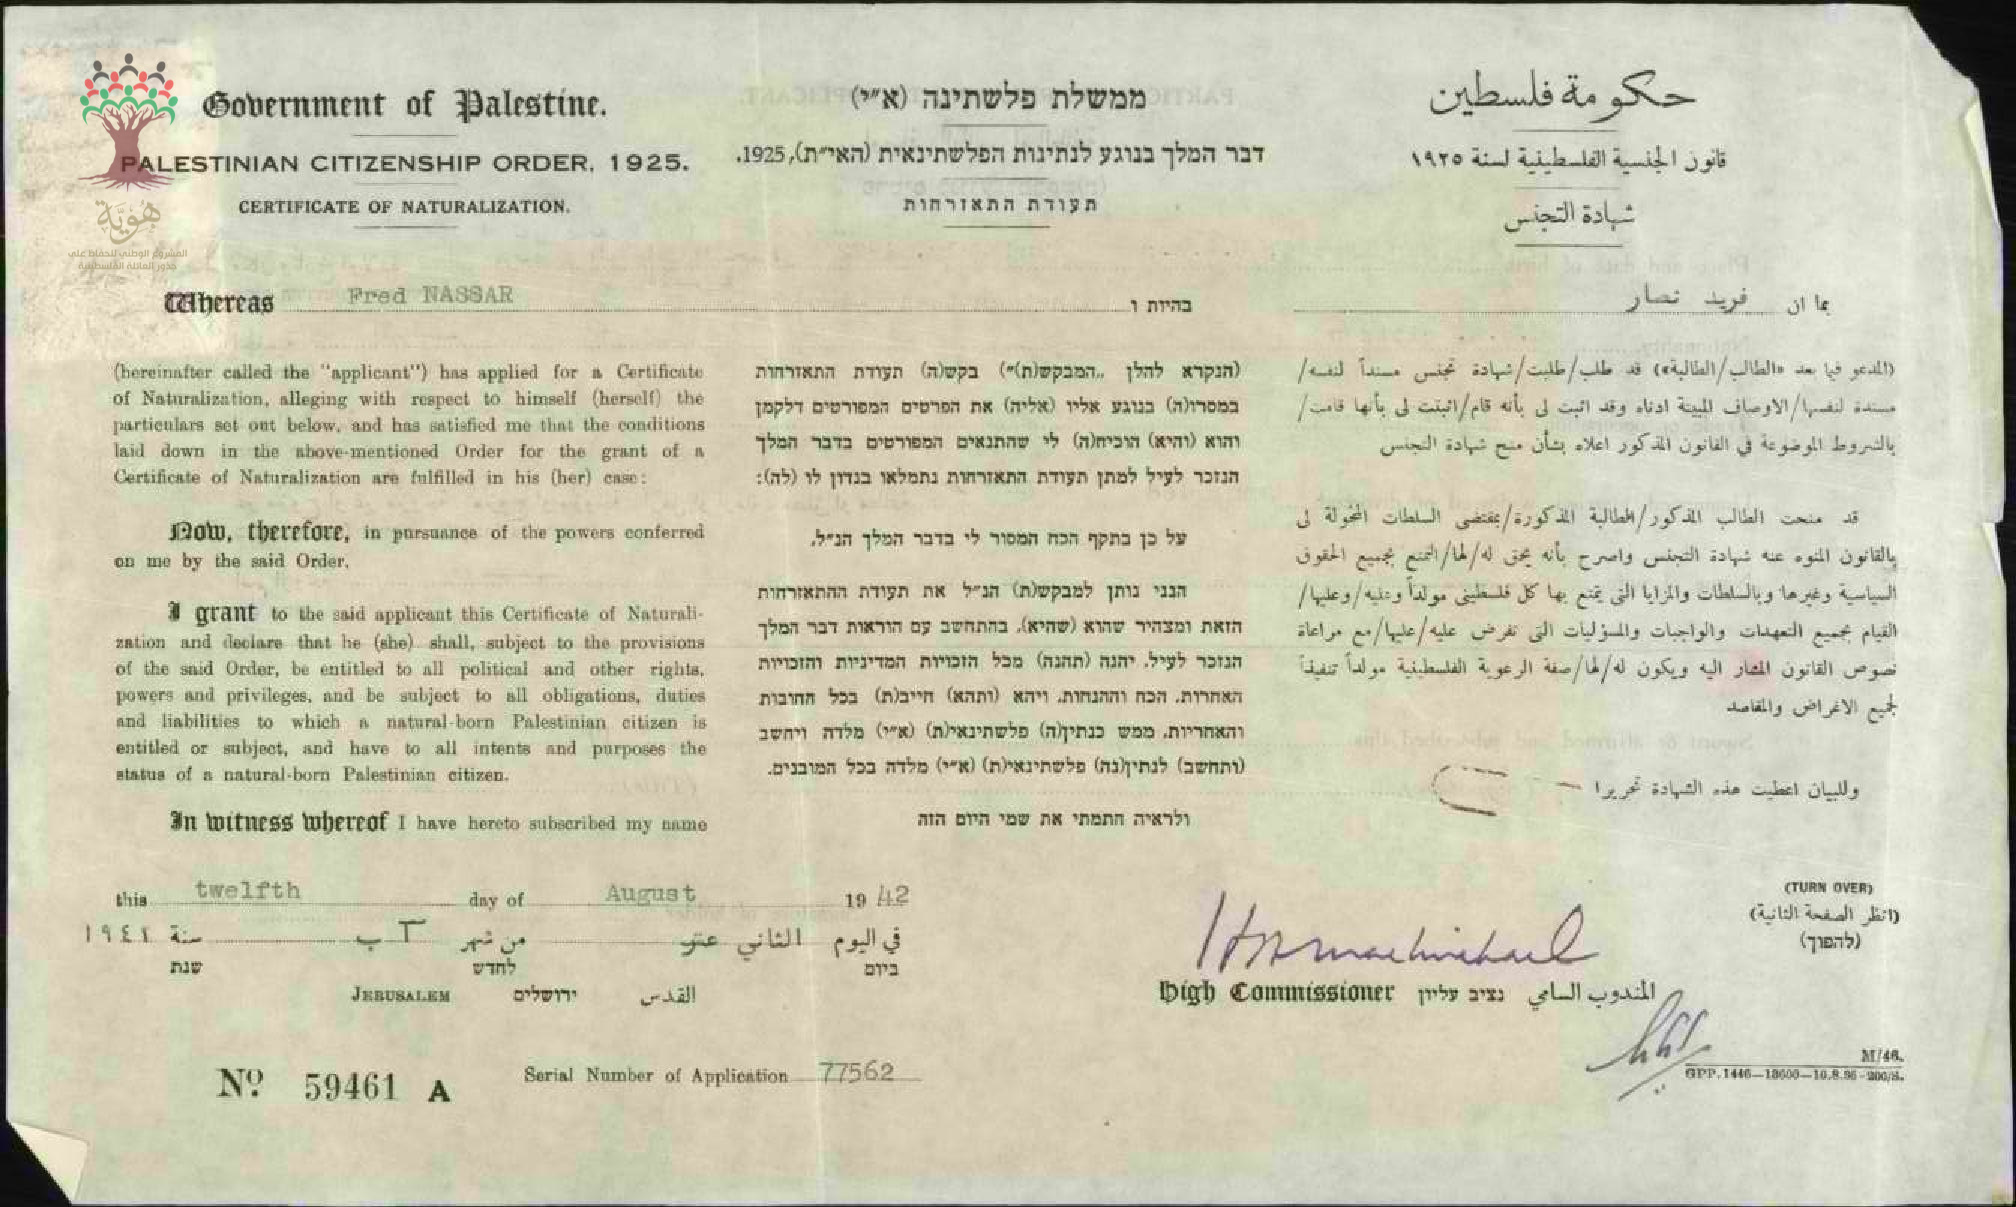 Government of Palestine.
PALESTINIAN CITIZENSHIP ORDER, 1925.
CERTIFICATE OF NATURALIZATION.
ממשלת פלשתינה (א״י)
דבר המלך בנוגע לנתינות הפלשתינאית (האי״ת), 1925.
תעודת התאזרחות
حكومة فلسطين
قانون الجنسية الفلسطينية لسنة ١٩٢٥
شهادة التجنس
هُويَّة
المشروع الوطني للحفاظ على
جذور العائلة الفلسطينية
Whereas Fred NASSAR
בהיות ו
بما ان فريد نصار
(hereinafter called the "applicant") has applied for a Certificate
of Naturalization, alleging with respect to himself (herself) the
particulars set out below, and has satisfied me that the conditions
laid down in the above-mentioned Order for the grant of a
Certificate of Naturalization are fulfilled in his (her) case:
Now, therefore, in pursuance of the powers conferred
on me by the said Order,
I grant to the said applicant this Certificate of Naturali-
zation and declare that he (she) shall, subject to the provisions
of the said Order, be entitled to all political and other rights,
powers and privileges, and be subject to all obligations, duties
and liabilities to which a natural-born Palestinian citizen is
entitled or subject, and have to all intents and purposes the
status of a natural-born Palestinian citizen.
In witness whereof I have hereto subscribed my name
(הנקרא להלן „המבקש(ת)״) בקש(ה) תעודת התאזרחות
במסרו(ה) בנוגע אליו (אליה) את הפרטים המפורטים דלקמן
והוא (והיא) הוכיח(ה) לי שהתנאים המפורטים בדבר המלך
הנזכר לעיל למתן תעודת התאזרחות נתמלאו בנדון לו (לה):
על כן בתקף הכח המסור לי בדבר המלך הנ״ל,
הנני נותן למבקש(ת) הנ״ל את תעודת ההתאזרחות
הזאת ומצהיר שהוא (שהיא), בהתחשב עם הוראות דבר המלך
הנזכר לעיל, יהנה (תהנה) מכל הזכויות המדיניות והזכויות
האחרות, הכח וההנחות, ויהא (ותהא) חייב(ת) בכל החובות
והאחריות, ממש כנתין(ה) פלשתינאי(ת) (א״י) מלדה ויחשב
(ותחשב) לנתין(נה) פלשתינאי(ת) (א״י) מלדה בכל המובנים.
ולראיה חתמתי את שמי היום הזה
(المدعو فيما بعد «الطالب/الطالبة») قد طلب/طلبت/شهادة تجنس مسنداً لنفسه/
مسندة لنفسها/الاوصاف المبينة ادناه وقد اثبت لى بأنه قام/اثبتت لى بأنها قامت/
بالشروط الموضوعة في القانون المذكور اعلاه بشأن منح شهادة التجنس
قد منحت الطالب المذكور/الطالبة المذكورة/بمقتضى السلطات المخولة لى
بالقانون المنوه عنه شهادة التجنس واصرح بأنه يحق له/لها/التمتع بجميع الحقوق
السياسية وغيرها وبالسلطات والمزايا التى يتمتع بها كل فلسطينى مولداً وعليه/وعليها/
القيام بجميع التعهدات والواجبات والمسؤليات التى تفرض عليه/عليها/مع مراعاة
نصوص القانون المشار اليه ويكون له/لها/صفة الرعوية الفلسطينية مولداً تنفيذاً
لجميع الاغراض والمقاصد
وللبيان اعطيت هذه الشهادة تحريرا
this twelfth day of August 19 42
في اليوم الثاني عشر من شهر آب سنة ١٩٤٢
ביום לחדש שנת
JERUSALEM ירושלים القدس
High Commissioner נציב עליון المندوب السامي
(TURN OVER)
(انظر الصفحة الثانية)
(להפוך)
No 59461 A
Serial Number of Application 77562
M/46.